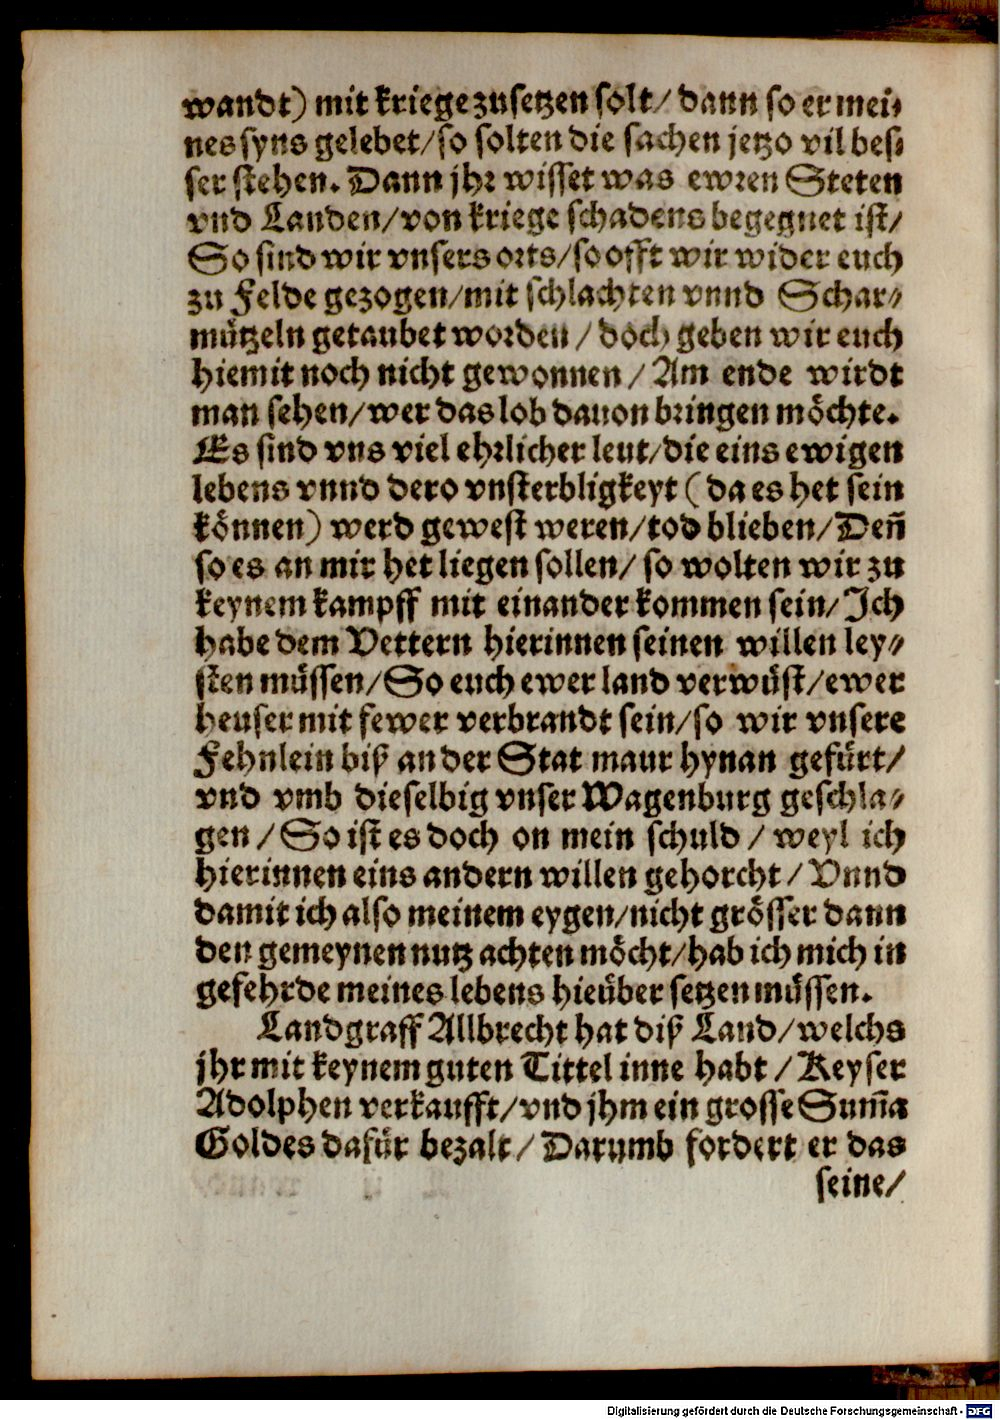 wandt) mit kriege zusetzen solt/ dann so er mei⸗
nes syns gelebet/so solten die sachen jetzo vil bes⸗
ser stehen. Dann jhr wisset was ewren Steten
vnd Landen/von kriege schadens begegnet ist/
So sind wir vnsers orts/so offt wir wider euch
zu Felde gezogen/mit schlachten vnnd Schar⸗
mützeln getaubet worden / doch geben wir euch
hiemit noch nicht gewonnen / Am ende wirdt
man sehen/wer das lob dauon bringen möchte.
Es sind vns viel ehrlicher leut/die eins ewigen
lebens vnnd dero vnsterbligkeyt ( da es het sein
können) werd gewest weren/tod blieben/Deñ
so es an mir het liegen sollen/ so wolten wir zu
keynem kampff mit einander kommen sein/Ich
habe dem Vettern hierinnen seinen willen ley⸗
sten müssen/So euch ewer land verwüst/ewer
heuser mit fewer verbrandt sein/so wir vnsere
Fehnlein biß an der Stat maur hynan gefürt/
vnd vmb dieselbig vnser Wagenburg geschla⸗
gen / So ist es doch on mein schuld / weyl ich
hierinnen eins andern willen gehorcht / Vnnd
damit ich also meinem eygen/nicht grösser dann
den gemeynen nutz achten möcht/hab ich mich in
gefehrde meines lebens hieüber setzen müssen.
Landgraff Allbrecht hat diß Land/welchs
jhr mit keynem guten Tittel inne habt / Keyser
Adolphen verkaufft/vnd jhm ein grosse Sum̃a
Goldes dafür bezalt/ Darumb fordert er das
seine/
Digitalisierung gefördert durch die Deutsche Forschungsgemeinschaft - DFG